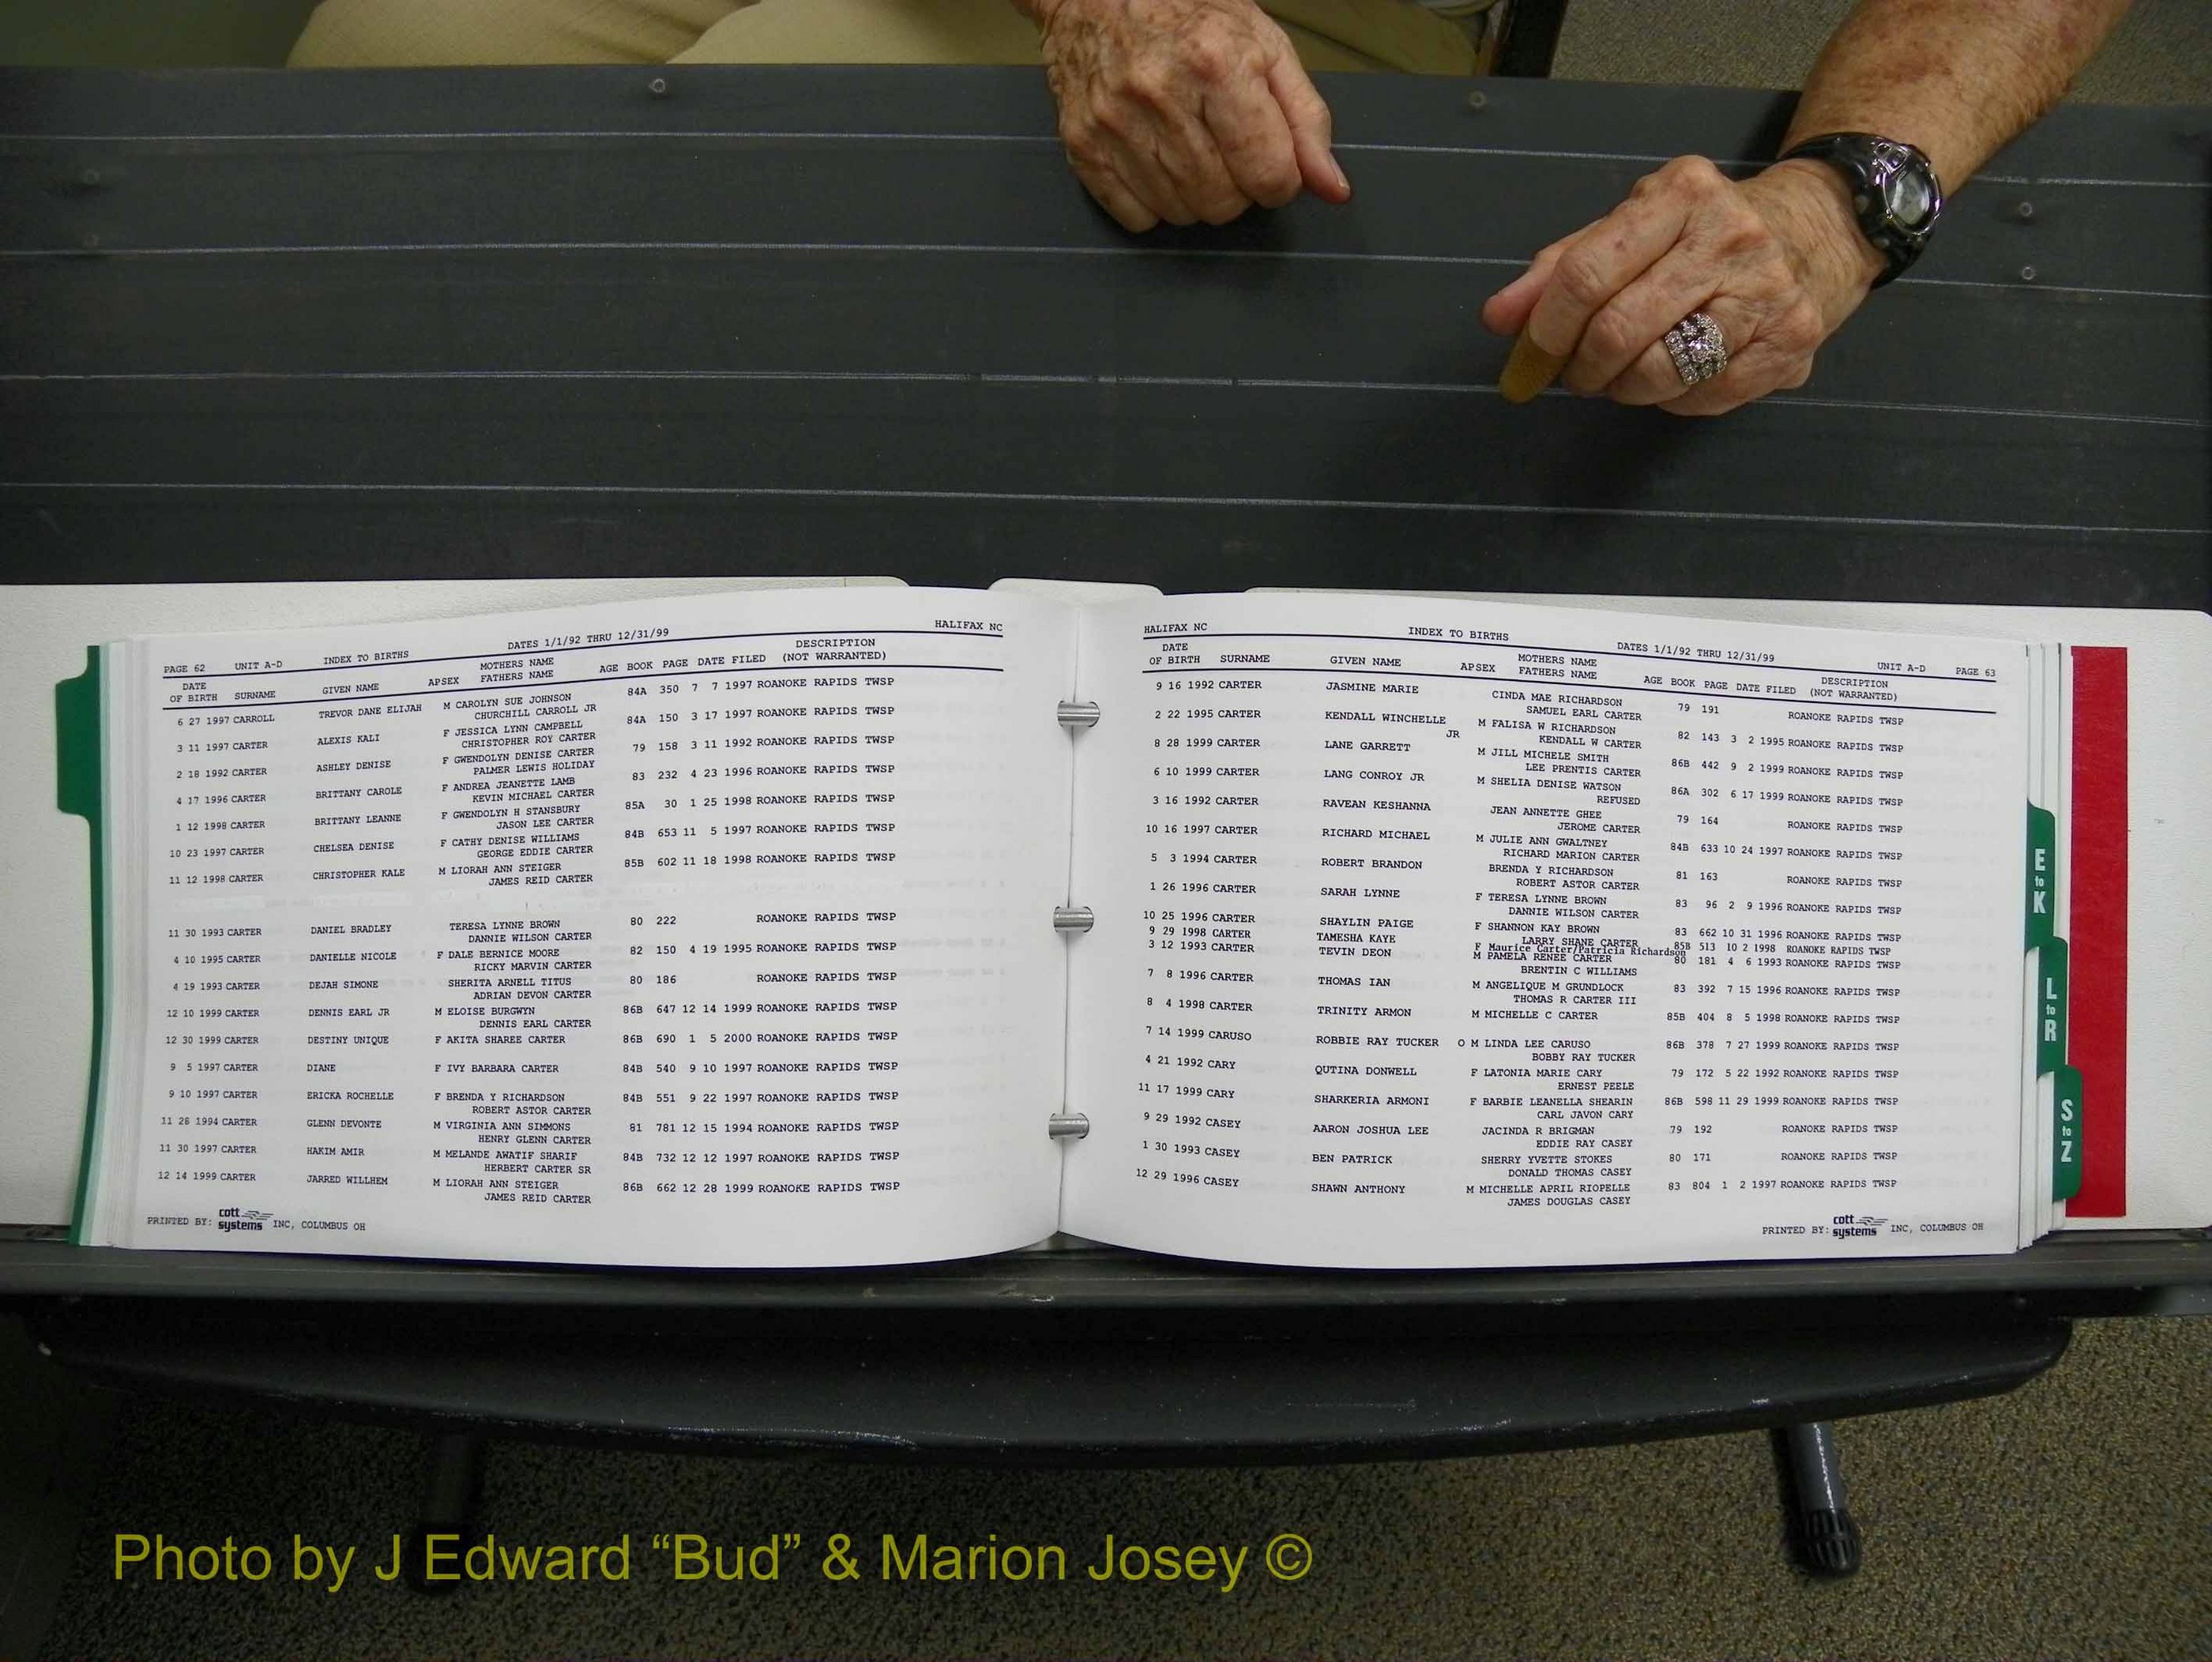 PAGE 62 UNIT A-D INDEX TO BIRTHS DATES 1/1/92 THRU 12/31/99 HALIFAX NC
DATE OF BIRTH SURNAME GIVEN NAME APSEX MOTHERS NAME FATHERS NAME AGE BOOK PAGE DATE FILED DESCRIPTION (NOT WARRANTED)
6 27 1997 CARROLL TREVOR DANE ELIJAH M CAROLYN SUE JOHNSON 84A 350 7 7 1997 ROANOKE RAPIDS TWSP
CHURCHILL CARROLL JR
3 11 1997 CARTER ALEXIS KALI F JESSICA LYNN CAMPBELL 84A 150 3 17 1997 ROANOKE RAPIDS TWSP
CHRISTOPHER ROY CARTER
2 18 1992 CARTER ASHLEY DENISE F GWENDOLYN DENISE CARTER 79 158 3 11 1992 ROANOKE RAPIDS TWSP
PALMER LEWIS HOLIDAY
4 17 1996 CARTER BRITTANY CAROLE F ANDREA JEANETTE LAMB 83 232 4 23 1996 ROANOKE RAPIDS TWSP
KEVIN MICHAEL CARTER
1 12 1998 CARTER BRITTANY LEANNE F GWENDOLYN H STANSBURY 85A 30 1 25 1998 ROANOKE RAPIDS TWSP
JASON LEE CARTER
10 23 1997 CARTER CHELSEA DENISE F CATHY DENISE WILLIAMS 84B 653 11 5 1997 ROANOKE RAPIDS TWSP
GEORGE EDDIE CARTER
11 12 1998 CARTER CHRISTOPHER KALE M LIORAH ANN STEIGER 85B 602 11 18 1998 ROANOKE RAPIDS TWSP
JAMES REID CARTER
11 30 1993 CARTER DANIEL BRADLEY TERESA LYNNE BROWN 80 222 ROANOKE RAPIDS TWSP
DANNIE WILSON CARTER
4 10 1995 CARTER DANIELLE NICOLE F DALE BERNICE MOORE 82 150 4 19 1995 ROANOKE RAPIDS TWSP
RICKY MARVIN CARTER
4 19 1993 CARTER DEJAH SIMONE SHERITA ARNELL TITUS 80 186 ROANOKE RAPIDS TWSP
ADRIAN DEVON CARTER
12 10 1999 CARTER DENNIS EARL JR M ELOISE BURGWYN 86B 647 12 14 1999 ROANOKE RAPIDS TWSP
DENNIS EARL CARTER
12 30 1999 CARTER DESTINY UNIQUE F AKITA SHAREE CARTER 86B 690 1 5 2000 ROANOKE RAPIDS TWSP
9 5 1997 CARTER DIANE F IVY BARBARA CARTER 84B 540 9 10 1997 ROANOKE RAPIDS TWSP
9 10 1997 CARTER ERICKA ROCHELLE F BRENDA Y RICHARDSON 84B 551 9 22 1997 ROANOKE RAPIDS TWSP
ROBERT ASTOR CARTER
11 28 1994 CARTER GLENN DEVONTE M VIRGINIA ANN SIMMONS 81 781 12 15 1994 ROANOKE RAPIDS TWSP
HENRY GLENN CARTER
11 30 1997 CARTER HAKIM AMIR M MELANDE AWATIF SHARIF 84B 732 12 12 1997 ROANOKE RAPIDS TWSP
HERBERT CARTER SR
12 14 1999 CARTER JARRED WILLHEM M LIORAH ANN STEIGER 86B 662 12 28 1999 ROANOKE RAPIDS TWSP
JAMES REID CARTER
PRINTED BY: cott systems INC, COLUMBUS OH
HALIFAX NC INDEX TO BIRTHS DATES 1/1/92 THRU 12/31/99 UNIT A-D PAGE 63
DATE OF BIRTH SURNAME GIVEN NAME APSEX MOTHERS NAME FATHERS NAME AGE BOOK PAGE DATE FILED DESCRIPTION (NOT WARRANTED)
9 16 1992 CARTER JASMINE MARIE CINDA MAE RICHARDSON 79 191 ROANOKE RAPIDS TWSP
SAMUEL EARL CARTER
2 22 1995 CARTER KENDALL WINCHELLE JR M FALISA W RICHARDSON 82 143 3 2 1995 ROANOKE RAPIDS TWSP
KENDALL W CARTER
8 28 1999 CARTER LANE GARRETT M JILL MICHELE SMITH 86B 442 9 2 1999 ROANOKE RAPIDS TWSP
LEE PRENTIS CARTER
6 10 1999 CARTER LANG CONROY JR M SHELIA DENISE WATSON 86A 302 6 17 1999 ROANOKE RAPIDS TWSP
REFUSED
3 16 1992 CARTER RAVEAN KESHANNA JEAN ANNETTE GHEE 79 164 ROANOKE RAPIDS TWSP
JEROME CARTER
10 16 1997 CARTER RICHARD MICHAEL M JULIE ANN GWALTNEY 84B 633 10 24 1997 ROANOKE RAPIDS TWSP
RICHARD MARION CARTER
5 3 1994 CARTER ROBERT BRANDON BRENDA Y RICHARDSON 81 163 ROANOKE RAPIDS TWSP
ROBERT ASTOR CARTER
1 26 1996 CARTER SARAH LYNNE F TERESA LYNNE BROWN 83 96 2 9 1996 ROANOKE RAPIDS TWSP
DANNIE WILSON CARTER
10 25 1996 CARTER SHAYLIN PAIGE F SHANNON KAY BROWN 83 662 10 31 1996 ROANOKE RAPIDS TWSP
LARRY SHANE CARTER
9 29 1998 CARTER TAMESHA KAYE F Maurice Carter/Patricia Richardson 85B 513 10 2 1998 ROANOKE RAPIDS TWSP
3 12 1993 CARTER TEVIN DEON M PAMELA RENEE CARTER 80 181 4 6 1993 ROANOKE RAPIDS TWSP
BRENTIN C WILLIAMS
7 8 1996 CARTER THOMAS IAN M ANGELIQUE M GRUNDLOCK 83 392 7 15 1996 ROANOKE RAPIDS TWSP
THOMAS R CARTER III
8 4 1998 CARTER TRINITY ARMON M MICHELLE C CARTER 85B 404 8 5 1998 ROANOKE RAPIDS TWSP
7 14 1999 CARUSO ROBBIE RAY TUCKER O M LINDA LEE CARUSO 86B 378 7 27 1999 ROANOKE RAPIDS TWSP
BOBBY RAY TUCKER
4 21 1992 CARY QUTINA DONWELL F LATONIA MARIE CARY 79 172 5 22 1992 ROANOKE RAPIDS TWSP
ERNEST PEELE
11 17 1999 CARY SHARKERIA ARMONI F BARBIE LEANELLA SHEARIN 86B 598 11 29 1999 ROANOKE RAPIDS TWSP
CARL JAVON CARY
9 29 1992 CASEY AARON JOSHUA LEE JACINDA R BRIGMAN 79 192 ROANOKE RAPIDS TWSP
EDDIE RAY CASEY
1 30 1993 CASEY BEN PATRICK SHERRY YVETTE STOKES 80 171 ROANOKE RAPIDS TWSP
DONALD THOMAS CASEY
12 29 1996 CASEY SHAWN ANTHONY M MICHELLE APRIL RIOPELLE 83 804 1 2 1997 ROANOKE RAPIDS TWSP
JAMES DOUGLAS CASEY
PRINTED BY: cott systems INC, COLUMBUS OH
E to K
L to R
S to Z
Photo by J Edward “Bud” & Marion Josey ©